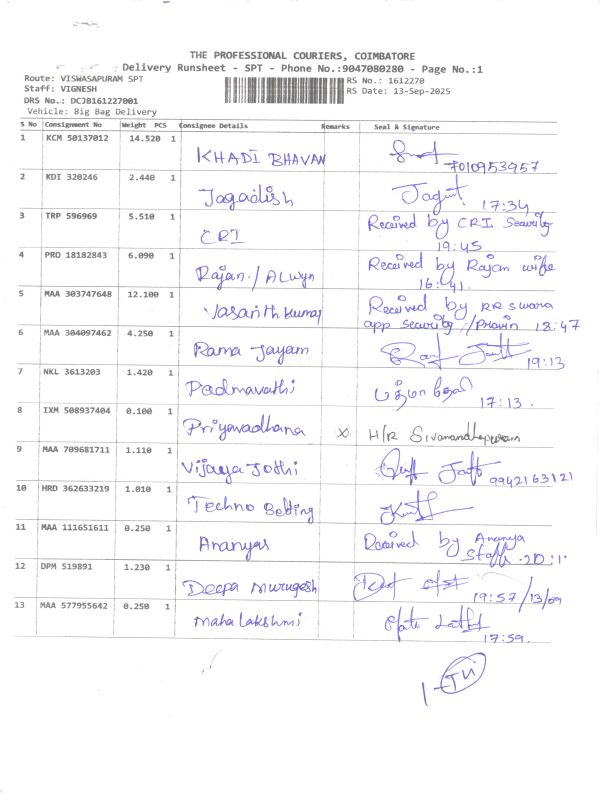 THE PROFESSIONAL COURIERS, COIMBATORE
Delivery Runsheet - SPT - Phone No.:9047080280 - Page No.:1
Route: VISWASAPURAM SPT
RS No.: 1612270
Staff: VIGNESH
RS Date: 13-Sep-2025
DRS No.: DCJB161227001
Vehicle: Big Bag Delivery
S No Consignment No Weight PCS Consignee Details Remarks Seal & Signature
1 KCM 50137012 14.520 1
KHADI BHAVAN 7010953957
2 KDI 320246 2.440 1
Jagadish 17:34
3 TRP 596969 5.510 1 Received by CRI Security
CRI 19:45
4 PRO 18182843 6.090 1 Received by Rajan wife
Rajan / Alwyn 16:41.
5 MAA 303747648 12.100 1 Received by RR swara
Vasanth kumar app security // Pravin 18:47
6 MAA 304097462 4.250 1
Rama Jayam 19:13
7 NKL 3613203 1.420 1
Padmavathi 17:13.
8 IXM 508937404 0.100 1
Priyavadhana x H/R Sivanandhapuram
9 MAA 709681711 1.110 1
Vijaya Jothi 9942163121
10 HRD 362633219 1.010 1
Techno Belting
11 MAA 111651611 0.250 1 Received by Ananya
Ananyas Staff
12 DPM 519891 1.230 1
Deepa Murugesh 19:57/13/09
13 MAA 577955642 0.250 1
Maha lakshmi
17:59.